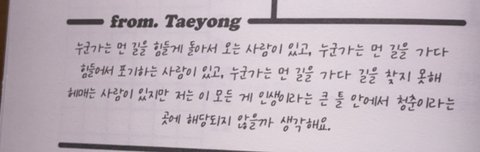 from. Taeyong
누군가는 먼 길을 힘들게 돌아서 오는 사람이 있고, 누군가는 먼 길을 가다
힘들어서 포기하는 사람이 있고, 누군가는 먼 길을 가다 길을 찾지 못해
헤매는 사람이 있지만 저는 이 모든 게 인생이라는 큰 틀 안에서 청춘이라는
곳에 해당되지 않을까 생각해요.